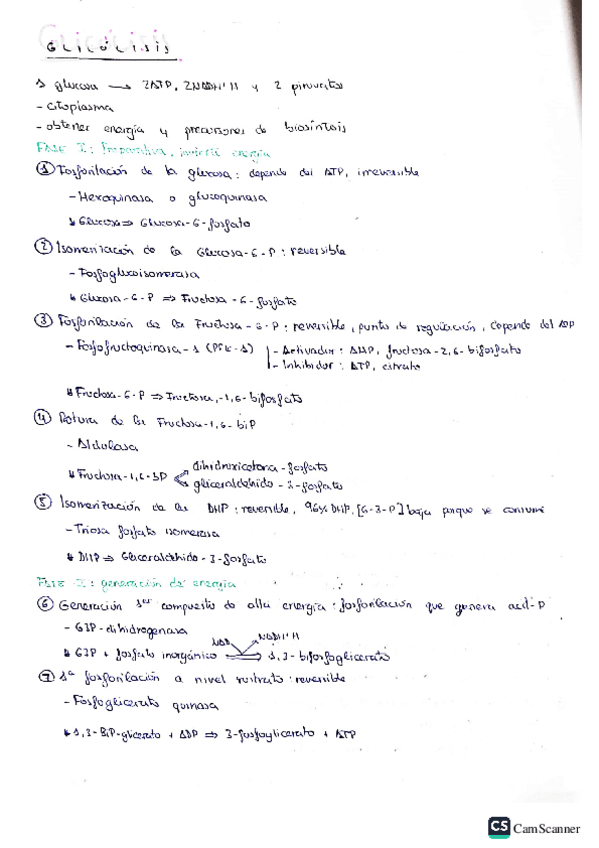 GLICÓLISIS
1 glucosa → 2ATP, 2NADH+H y 2 piruvatos
- Citoplasma
- obtener energía y precursores de biosíntesis
FASE I: Preparativa, invierte energía
① Fosforilación de la glucosa: depende del ATP, irreversible
- Hexoquinasa o glucoquinasa
↳ Glucosa ⇒ Glucosa-6-fosfato
② Isomerización de la Glucosa-6-P: reversible
- Fosfoglucoisomerasa
↳ Glucosa-6-P ⇒ Fructosa-6-fosfato
③ Fosforilación de la Fructosa-6-P: reversible, punto de regulación, depende del ADP
- Fosfofructoquinasa-1 (PFK-1) - Activador: AMP, fructosa-2,6-bifosfato
- Inhibidor: ATP, citrato
↳ Fructosa-6-P ⇒ Fructosa-1,6-bifosfato
④ Rotura de la Fructosa-1,6-biP
- Aldolasa
↳ Fructosa-1,6-BP dihidroxicetona-fosfato
gliceraldehído-3-fosfato
⑤ Isomerización de la DHP: reversible, 96% DHP, [G-3-P] baja porque se consume
- Triosa fosfato isomerasa
↳ DHP ⇒ Gliceraldehído-3-fosfato
FASE II: generación de energía
⑥ Generación 1er compuesto de alta energía: fosforilación que genera acil-P
- G3P-dihidrogenasa
NAD NADH+H
↳ G3P + fosfato inorgánico ⇌ 1,3-bifosfoglicerato
⑦ 1ª fosforilación a nivel sustrato: reversible
- Fosfoglicerato quinasa
↳ 1,3-BiP-glicerato + ADP ⇒ 3-fosfoglicerato + ATP
CS CamScanner